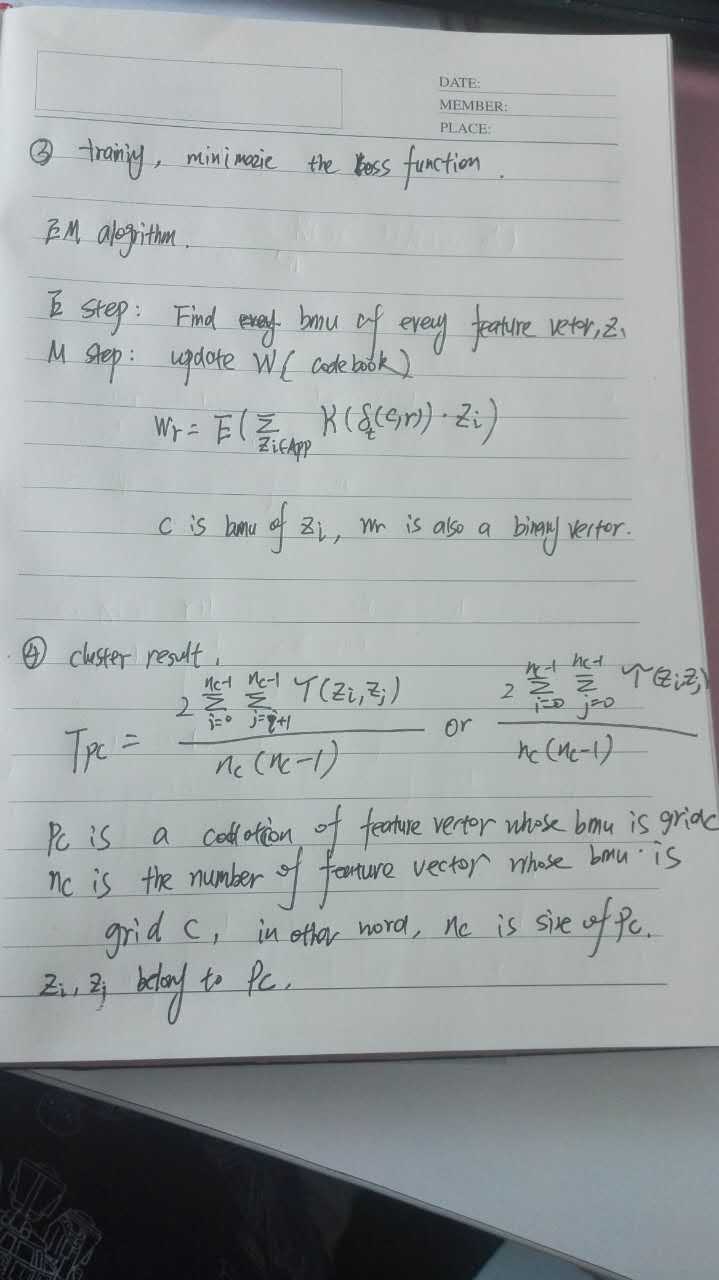 DATE:
MEMBER:
PLACE:
③ trainiy, minimazie the loss function.
EM alogrithm.
E step: Find bmu of every feature vetor, Zi
M step: update W ( codebook)
Wr = E( Σ Zi∈App K(δt(c,r)) · Zi )
C is bmu of Zi, Wr is also a binary vector.
④ cluster result.
Tpc = 2 Σ i=0 nc-1 Σ j=i+1 nc-1 T(Zi,Zj) / nc(nc-1) or 2 Σ i=0 nc-1 Σ j=0 nc-1 T(Zi,Zj) / nc(nc-1)
Pc is a of feature vertor whose bmu is grid c
nc is the number of feature vector whose bmu is
grid c, in other word, nc is size of Pc.
Zi, Zj belong to Pc.